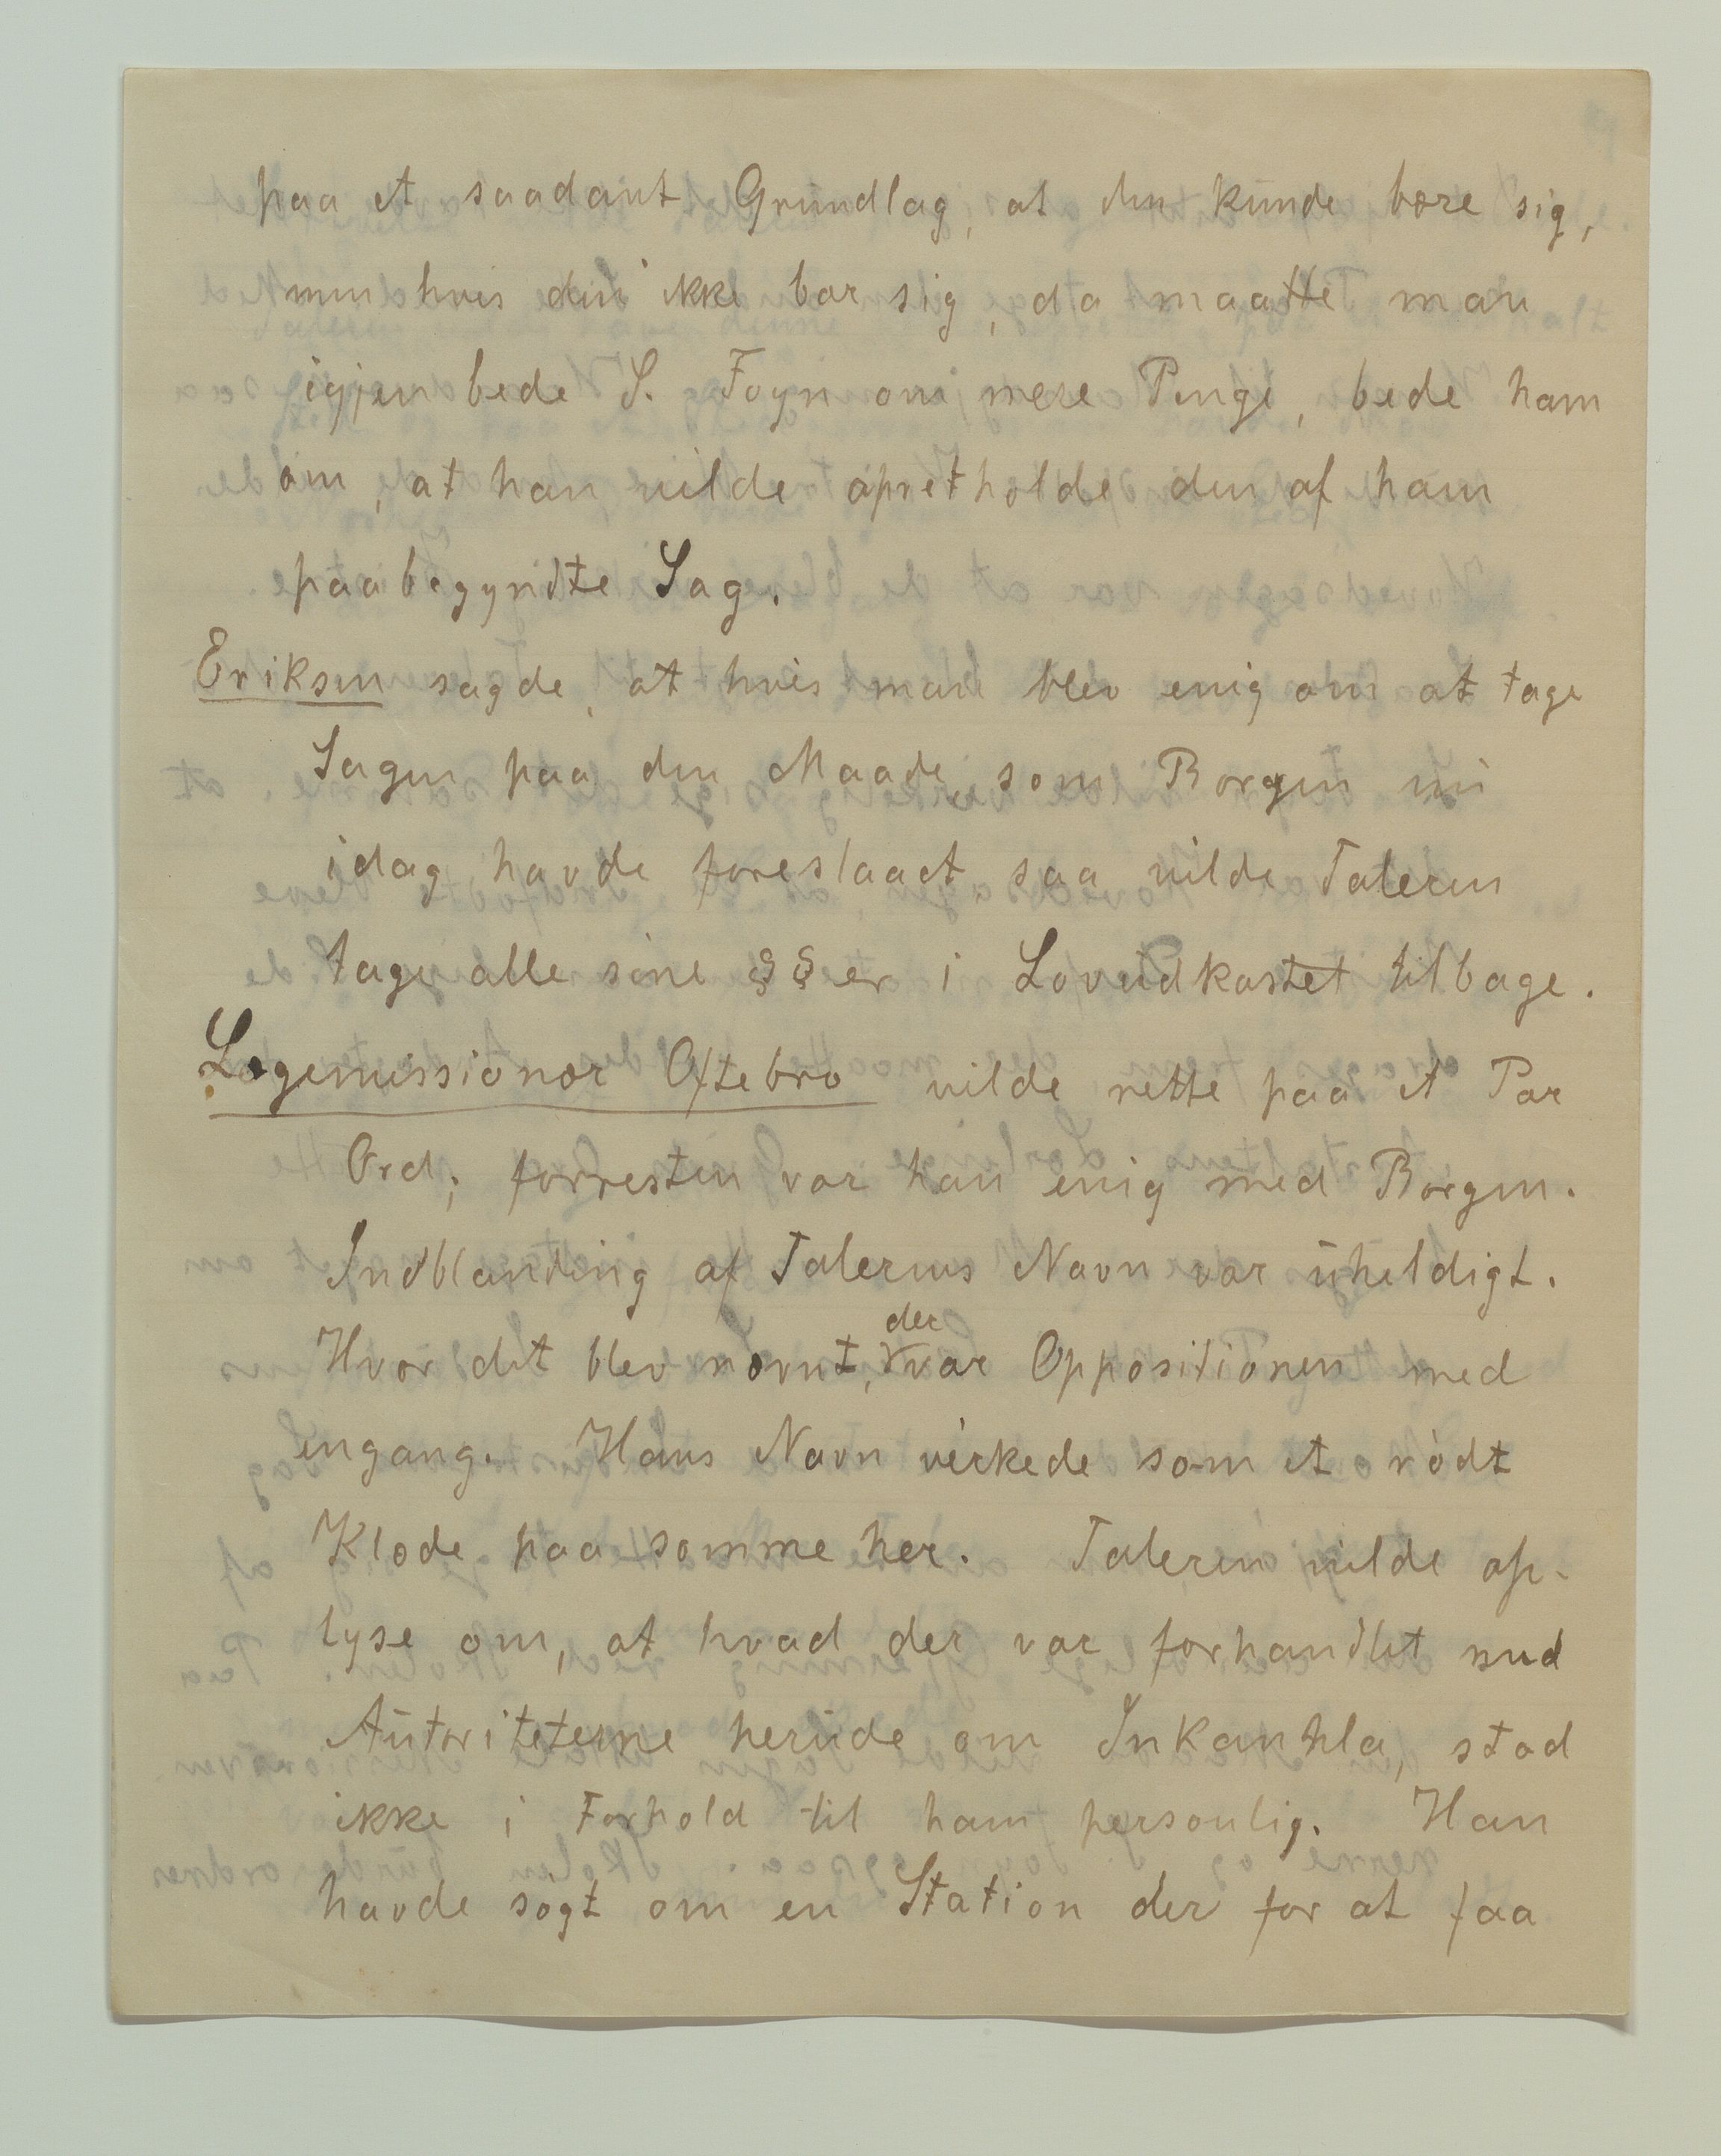 paa et saadant Grundlag, at den kunde bære sig,
men hvis den ikke bar sig, da maatte man
igjen bede S. Foyn om mere Penge, bede ham
om, at han vilde opretholde den af ham
paabegyndte Sag.
Eriksen sagde, at hvis man blev enig om at tage
Sagen paa den Maade, som Borgen nu
idag havde foreslaaet saa vilde Taleren
tage alle sine §§er i Lovudkastet tilbage.
Lægemissionær Oftebro vilde rette paa et Par
Ord; forresten var han enig med Borgen.
Indblanding af Talerens Navn var uheldigt.
Hvor det blev nævnt, der var Oppositionen med
engang. Hans Navn virkede som et rødt
Klæde paa somme her. Taleren vilde op-
lyse om, at hvad der var forhandlet med
Autoriteterne herude om Inkanhla, stod
ikke i Forhold til ham personlig. Han
havde søgt om en Station der for at faa